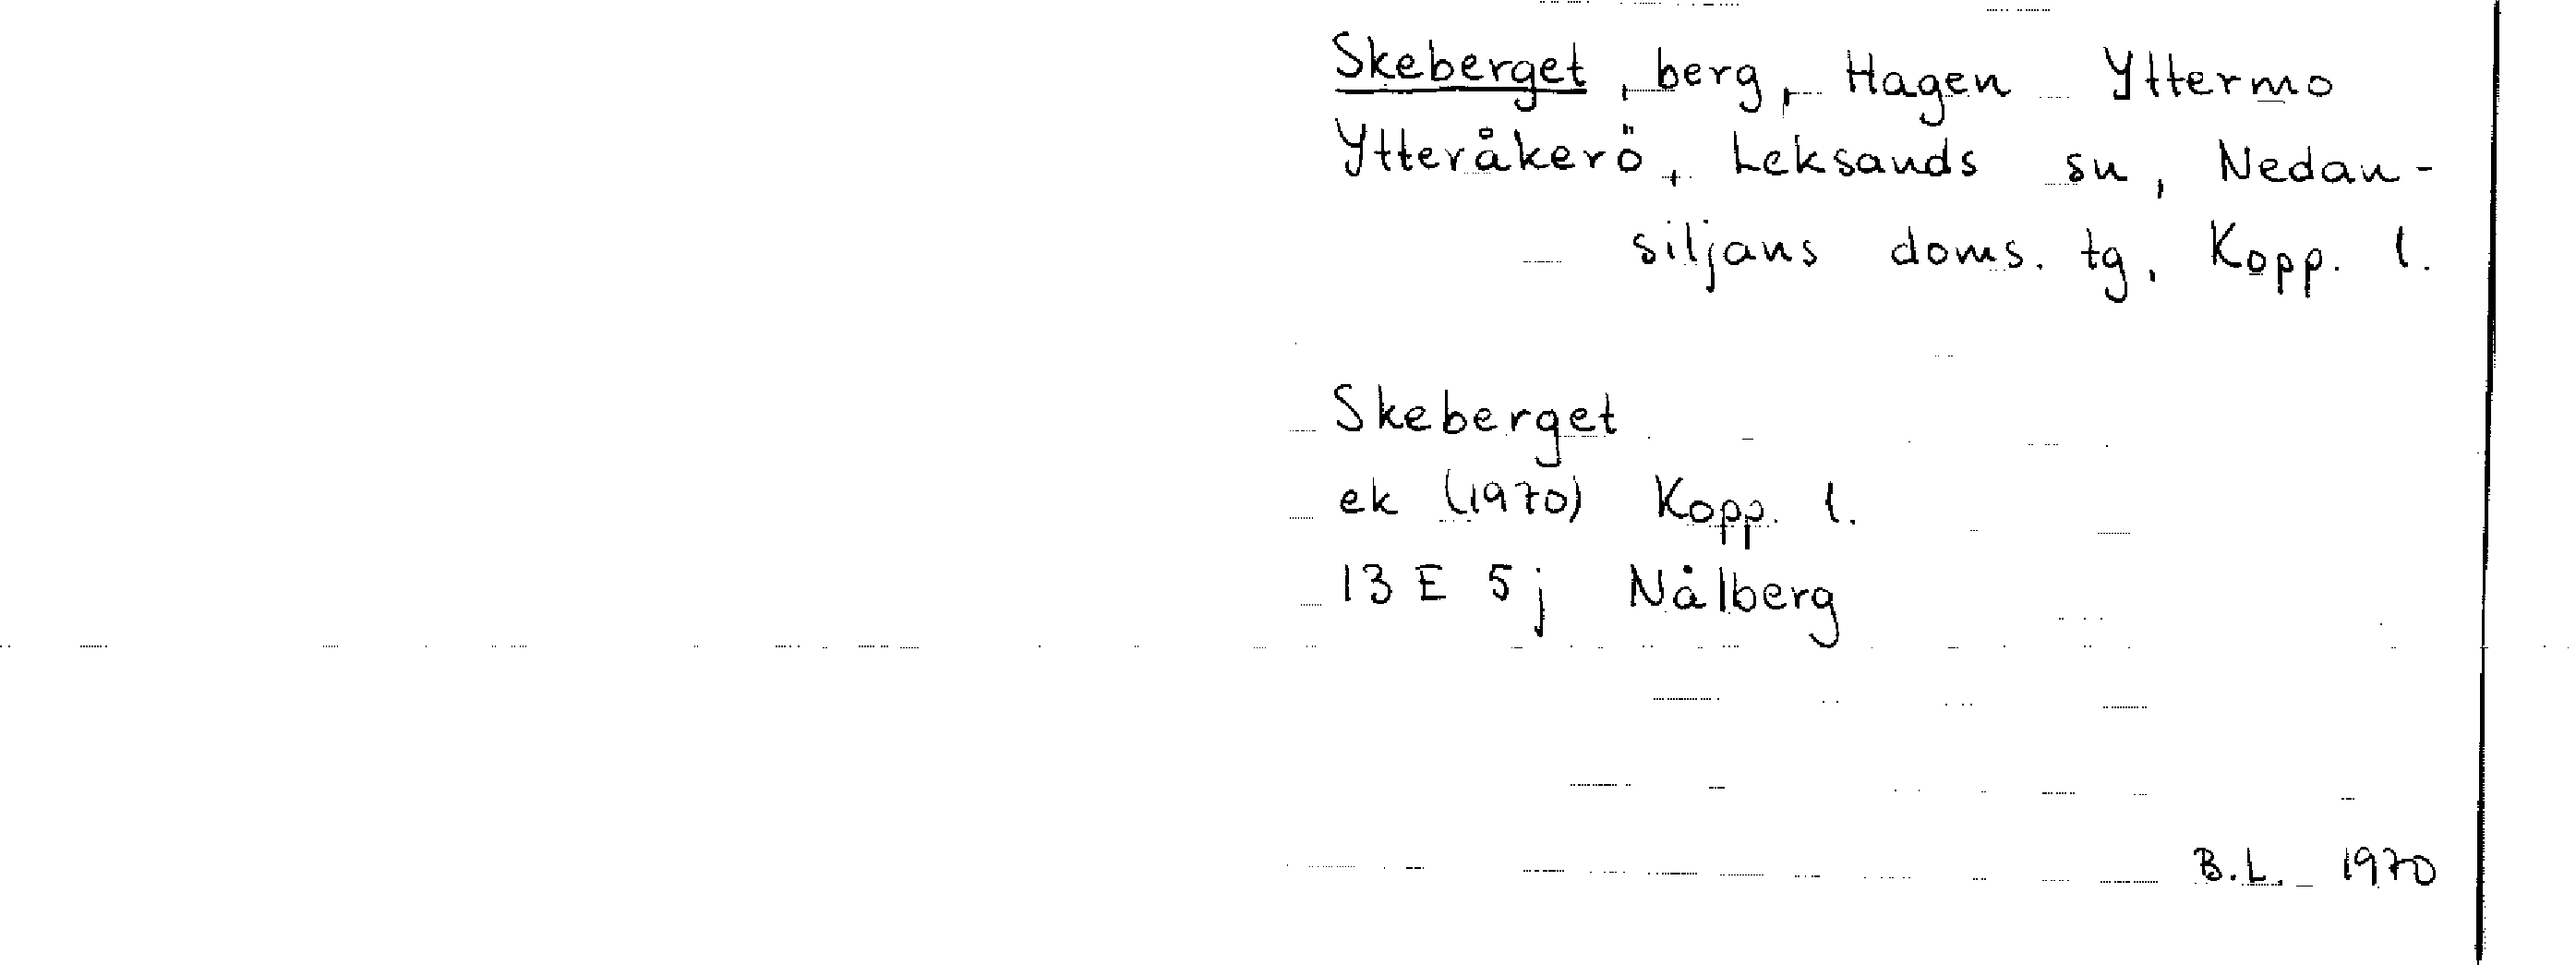 Skeberget, berg, Hagen Yttermo
Ytteråkerö, Leksands sn, Nedan-
siljans doms. tg, Kopp. l.
Skeberget
ek (1970) Kopp. l.
13 E 5 j Nålberg
B.L. 1970